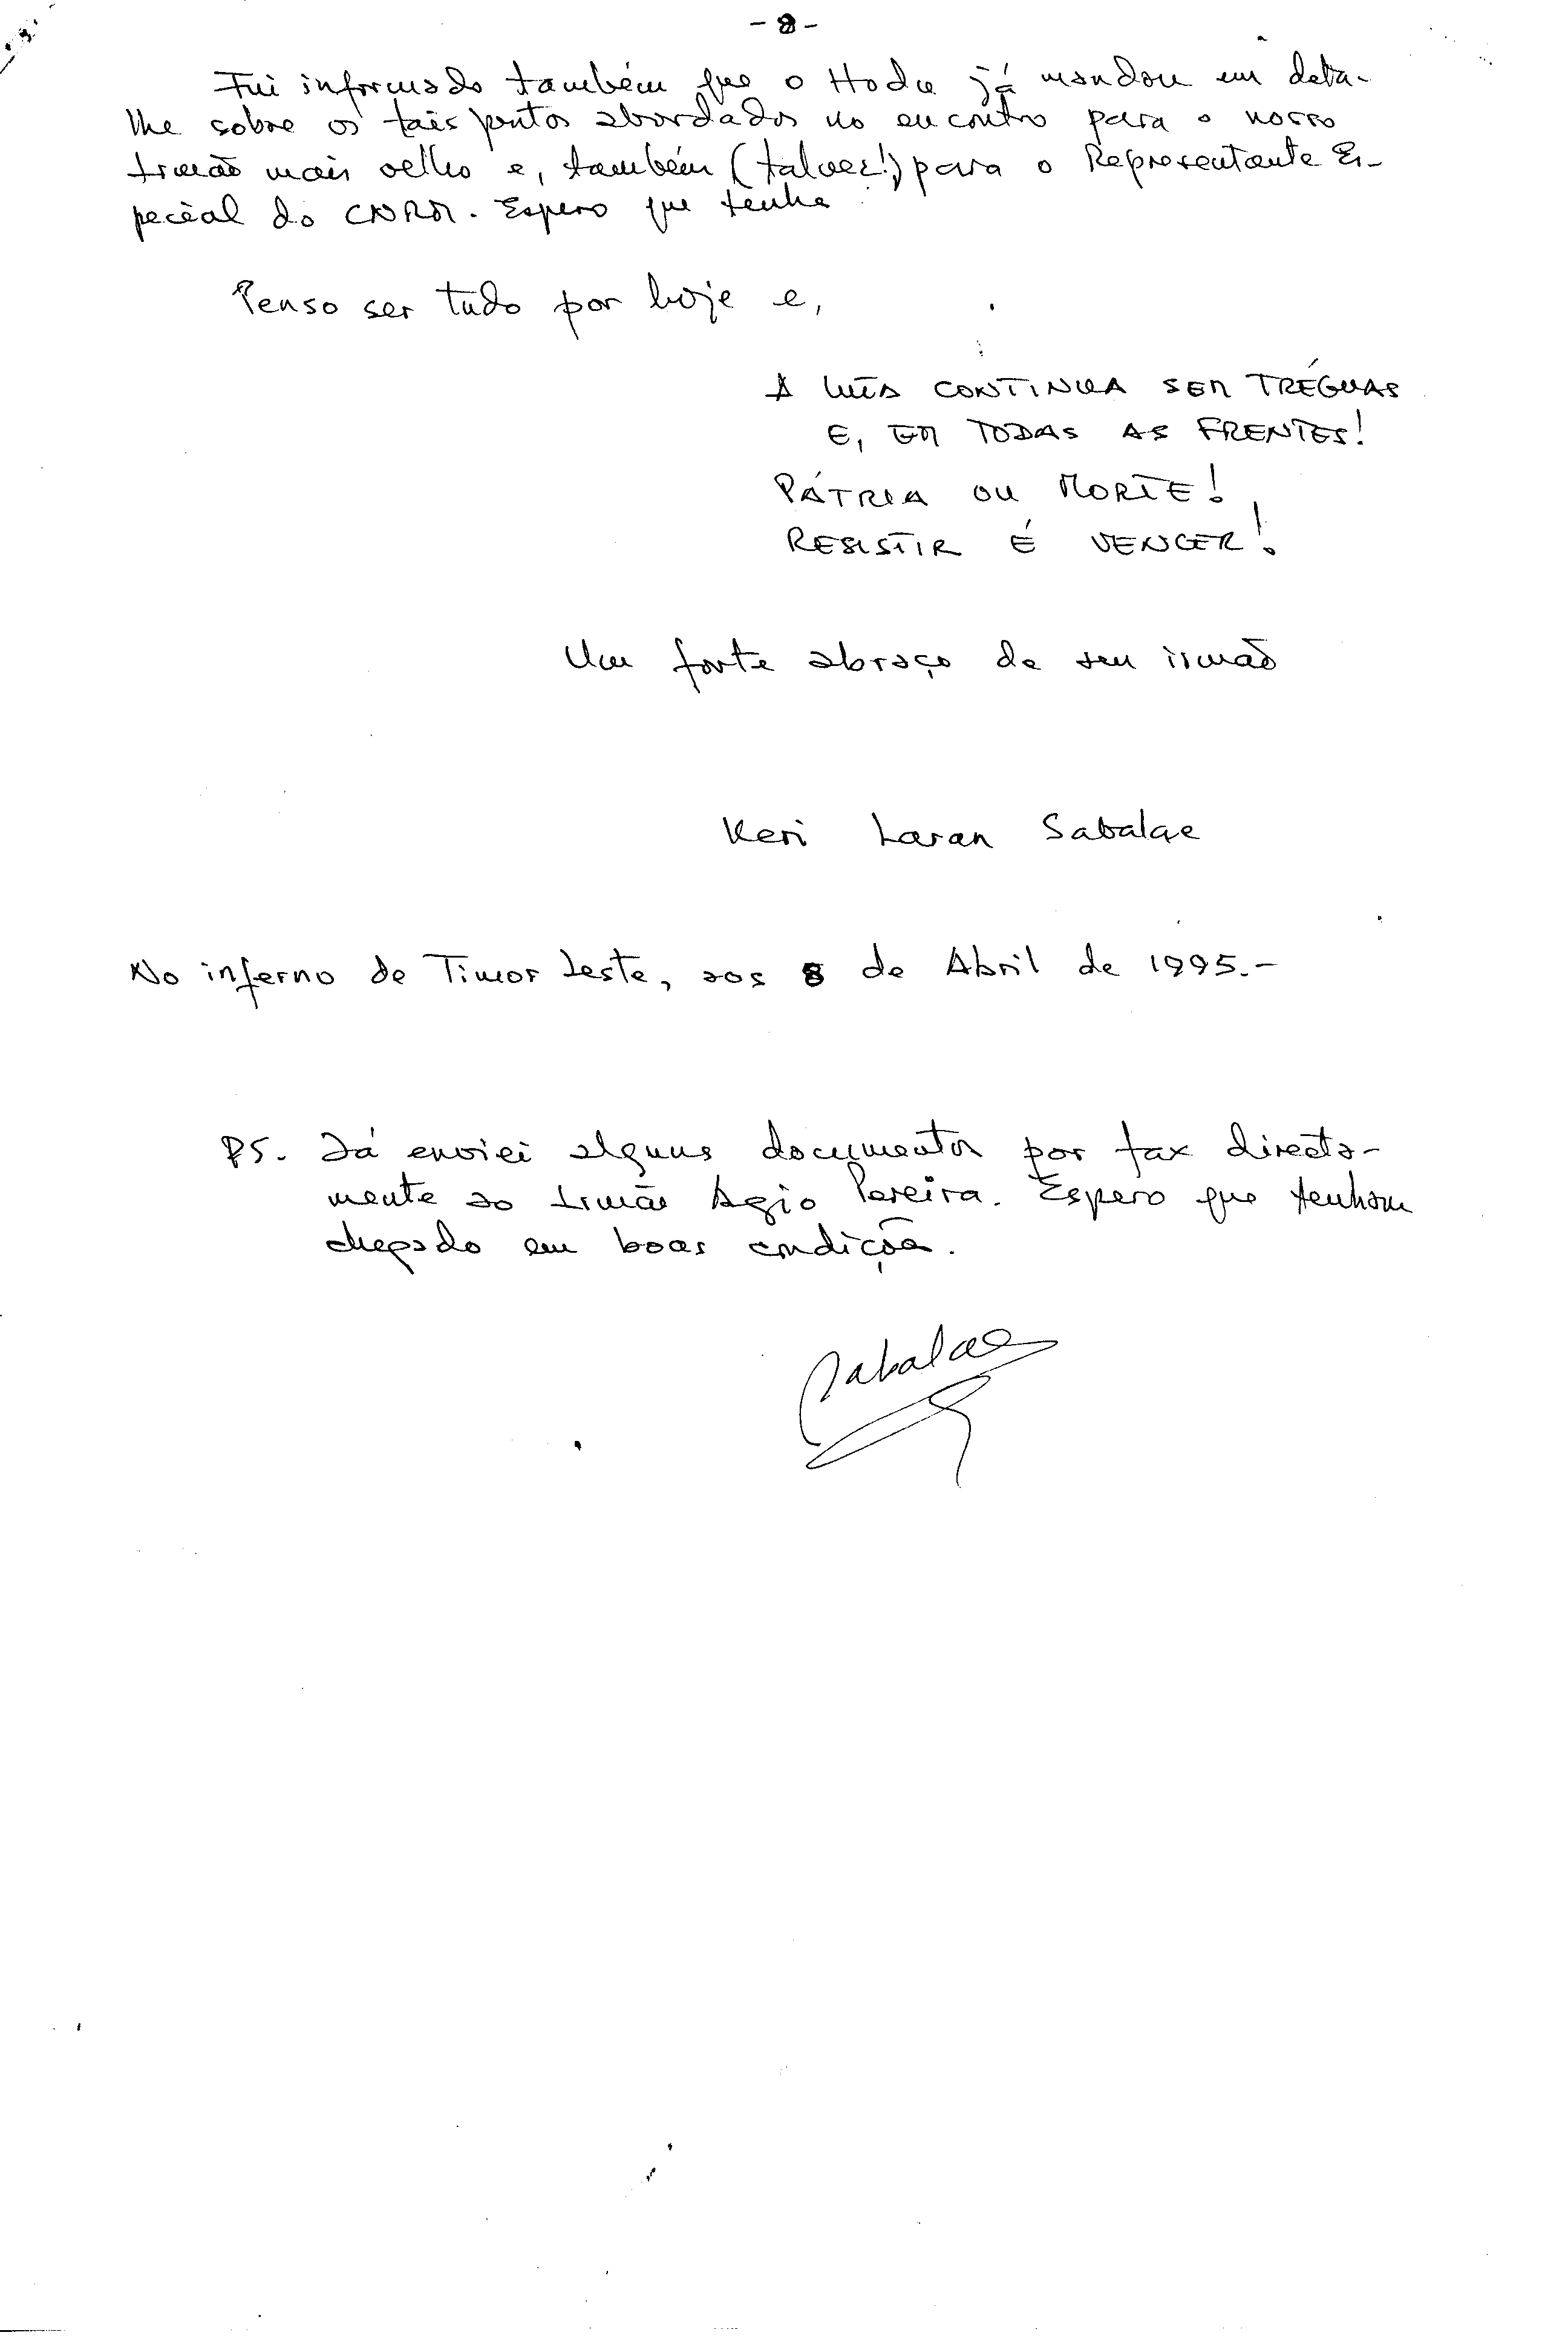 - 8 -
Fui informado também que o Hodu já mandou em deta-
lhe sobre os tais pontos abordados no encontro para o nosso
Irmão mais velho e, também (talvez!) para o Representante Es-
pecial do CNRM. Espero que tenha.
Penso ser tudo por hoje e,
A LUTA CONTINUA SEM TRÉGUAS
E, EM TODAS AS FRENTES!
PÁTRIA OU MORTE!
RESISTIR É VENCER!
Um forte abraço do seu irmão
Keri Laran Sabalae
No inferno de Timor Leste, aos 8 de Abril de 1995.-
PS. Já enviei alguns documentos por fax directa-
mente ao Irmão Agio Pereira. Espero que tenham
chegado em boas condições.
Sabalae